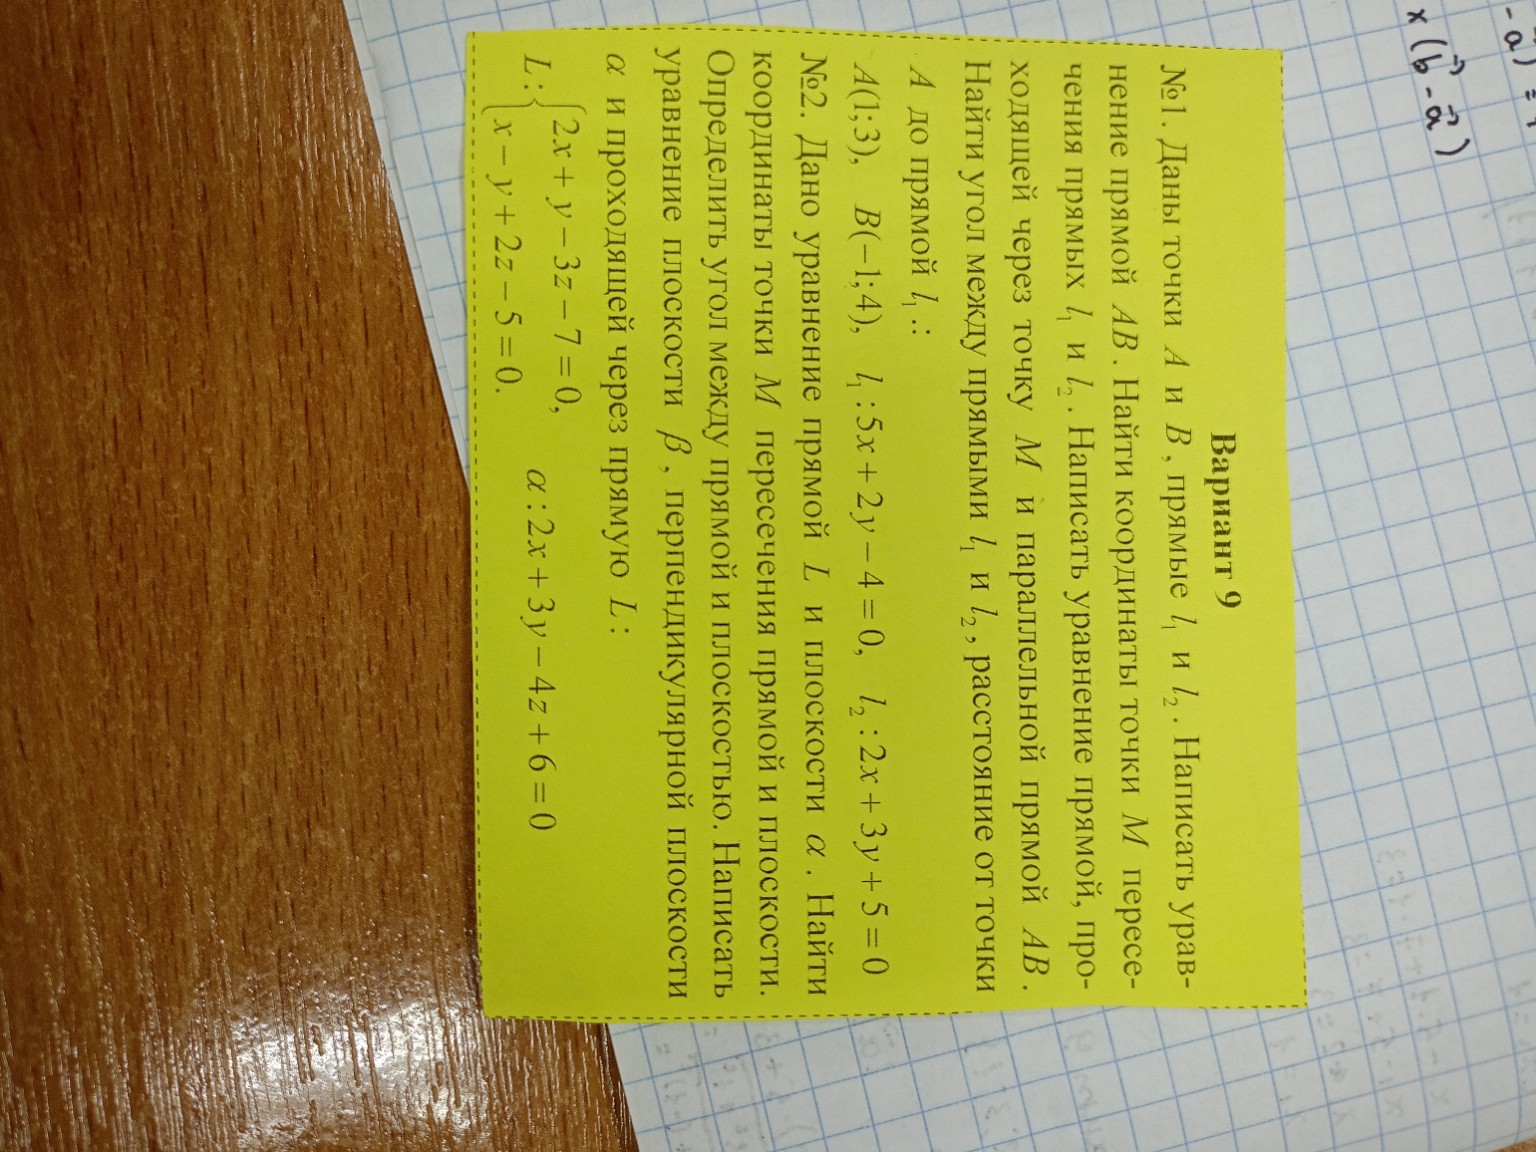 Вариант 9
№1. Даны точки A и B, прямые l₁ и l₂. Написать урав-
нение прямой AB. Найти координаты точки M пересе-
чения прямых l₁ и l₂. Написать уравнение прямой, про-
ходящей через точку M и параллельной прямой AB.
Найти угол между прямыми l₁ и l₂, расстояние от точки
A до прямой l₁:
A(1;3), B(−1;4), l₁: 5x + 2y − 4 = 0, l₂: 2x + 3y + 5 = 0
№2. Дано уравнение прямой L и плоскости α. Найти
координаты точки M пересечения прямой и плоскости.
Определить угол между прямой и плоскостью. Написать
уравнение плоскости β, перпендикулярной плоскости
α и проходящей через прямую L:
L: { 2x + y − 3z − 7 = 0, α: 2x + 3y − 4z + 6 = 0
x − y + 2z − 5 = 0.
x (b⃗ - a⃗)